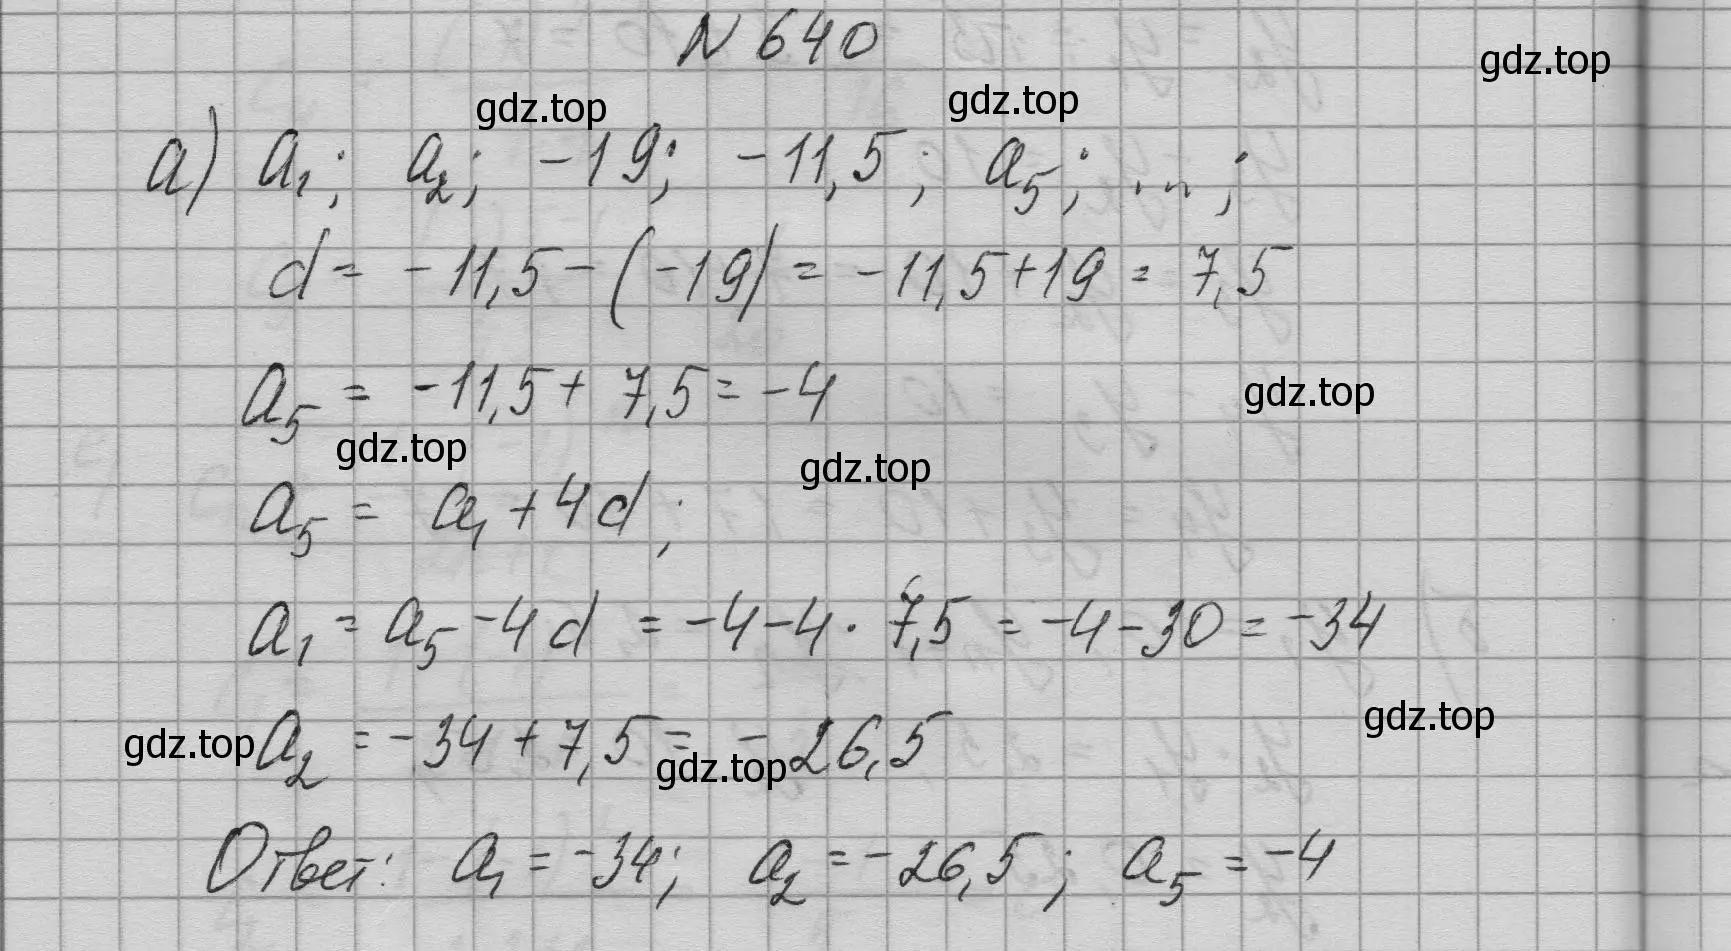 N 640
gdz.top
gdz.top
gdz.top
а) a₁; a₂; -19; -11,5; a₅; ...;
d = -11,5 - (-19) = -11,5 + 19 = 7,5
a₅ = -11,5 + 7,5 = -4
gdz.top
gdz.top
gdz.top
a₅ = a₁ + 4d;
a₁ = a₅ - 4d = -4 - 4 · 7,5 = -4 - 30 = -34
gdz.top
a₂ = -34 + 7,5 = -26,5
gdz.top
gdz.top
Ответ: a₁ = -34; a₂ = -26,5; a₅ = -4